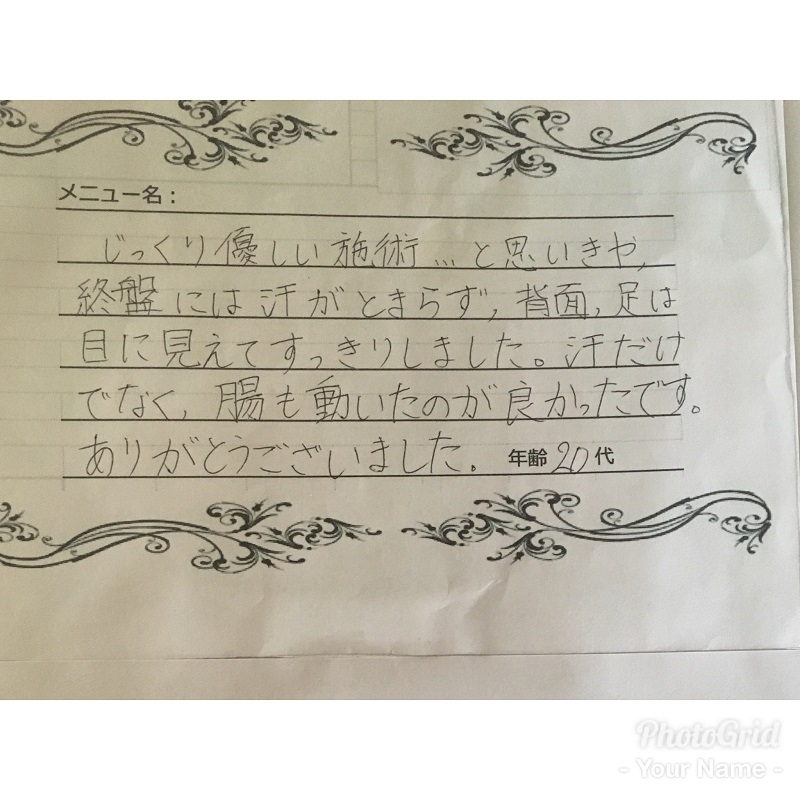 メニュー名：
じっくり優しい施術…と思いきや、
終盤には汗がとまらず、背面、足は
目に見えてすっきりしました。汗だけ
でなく、腸も動いたのが良かったです。
ありがとうございました。 年齢 20 代
PhotoGrid
- Your Name -